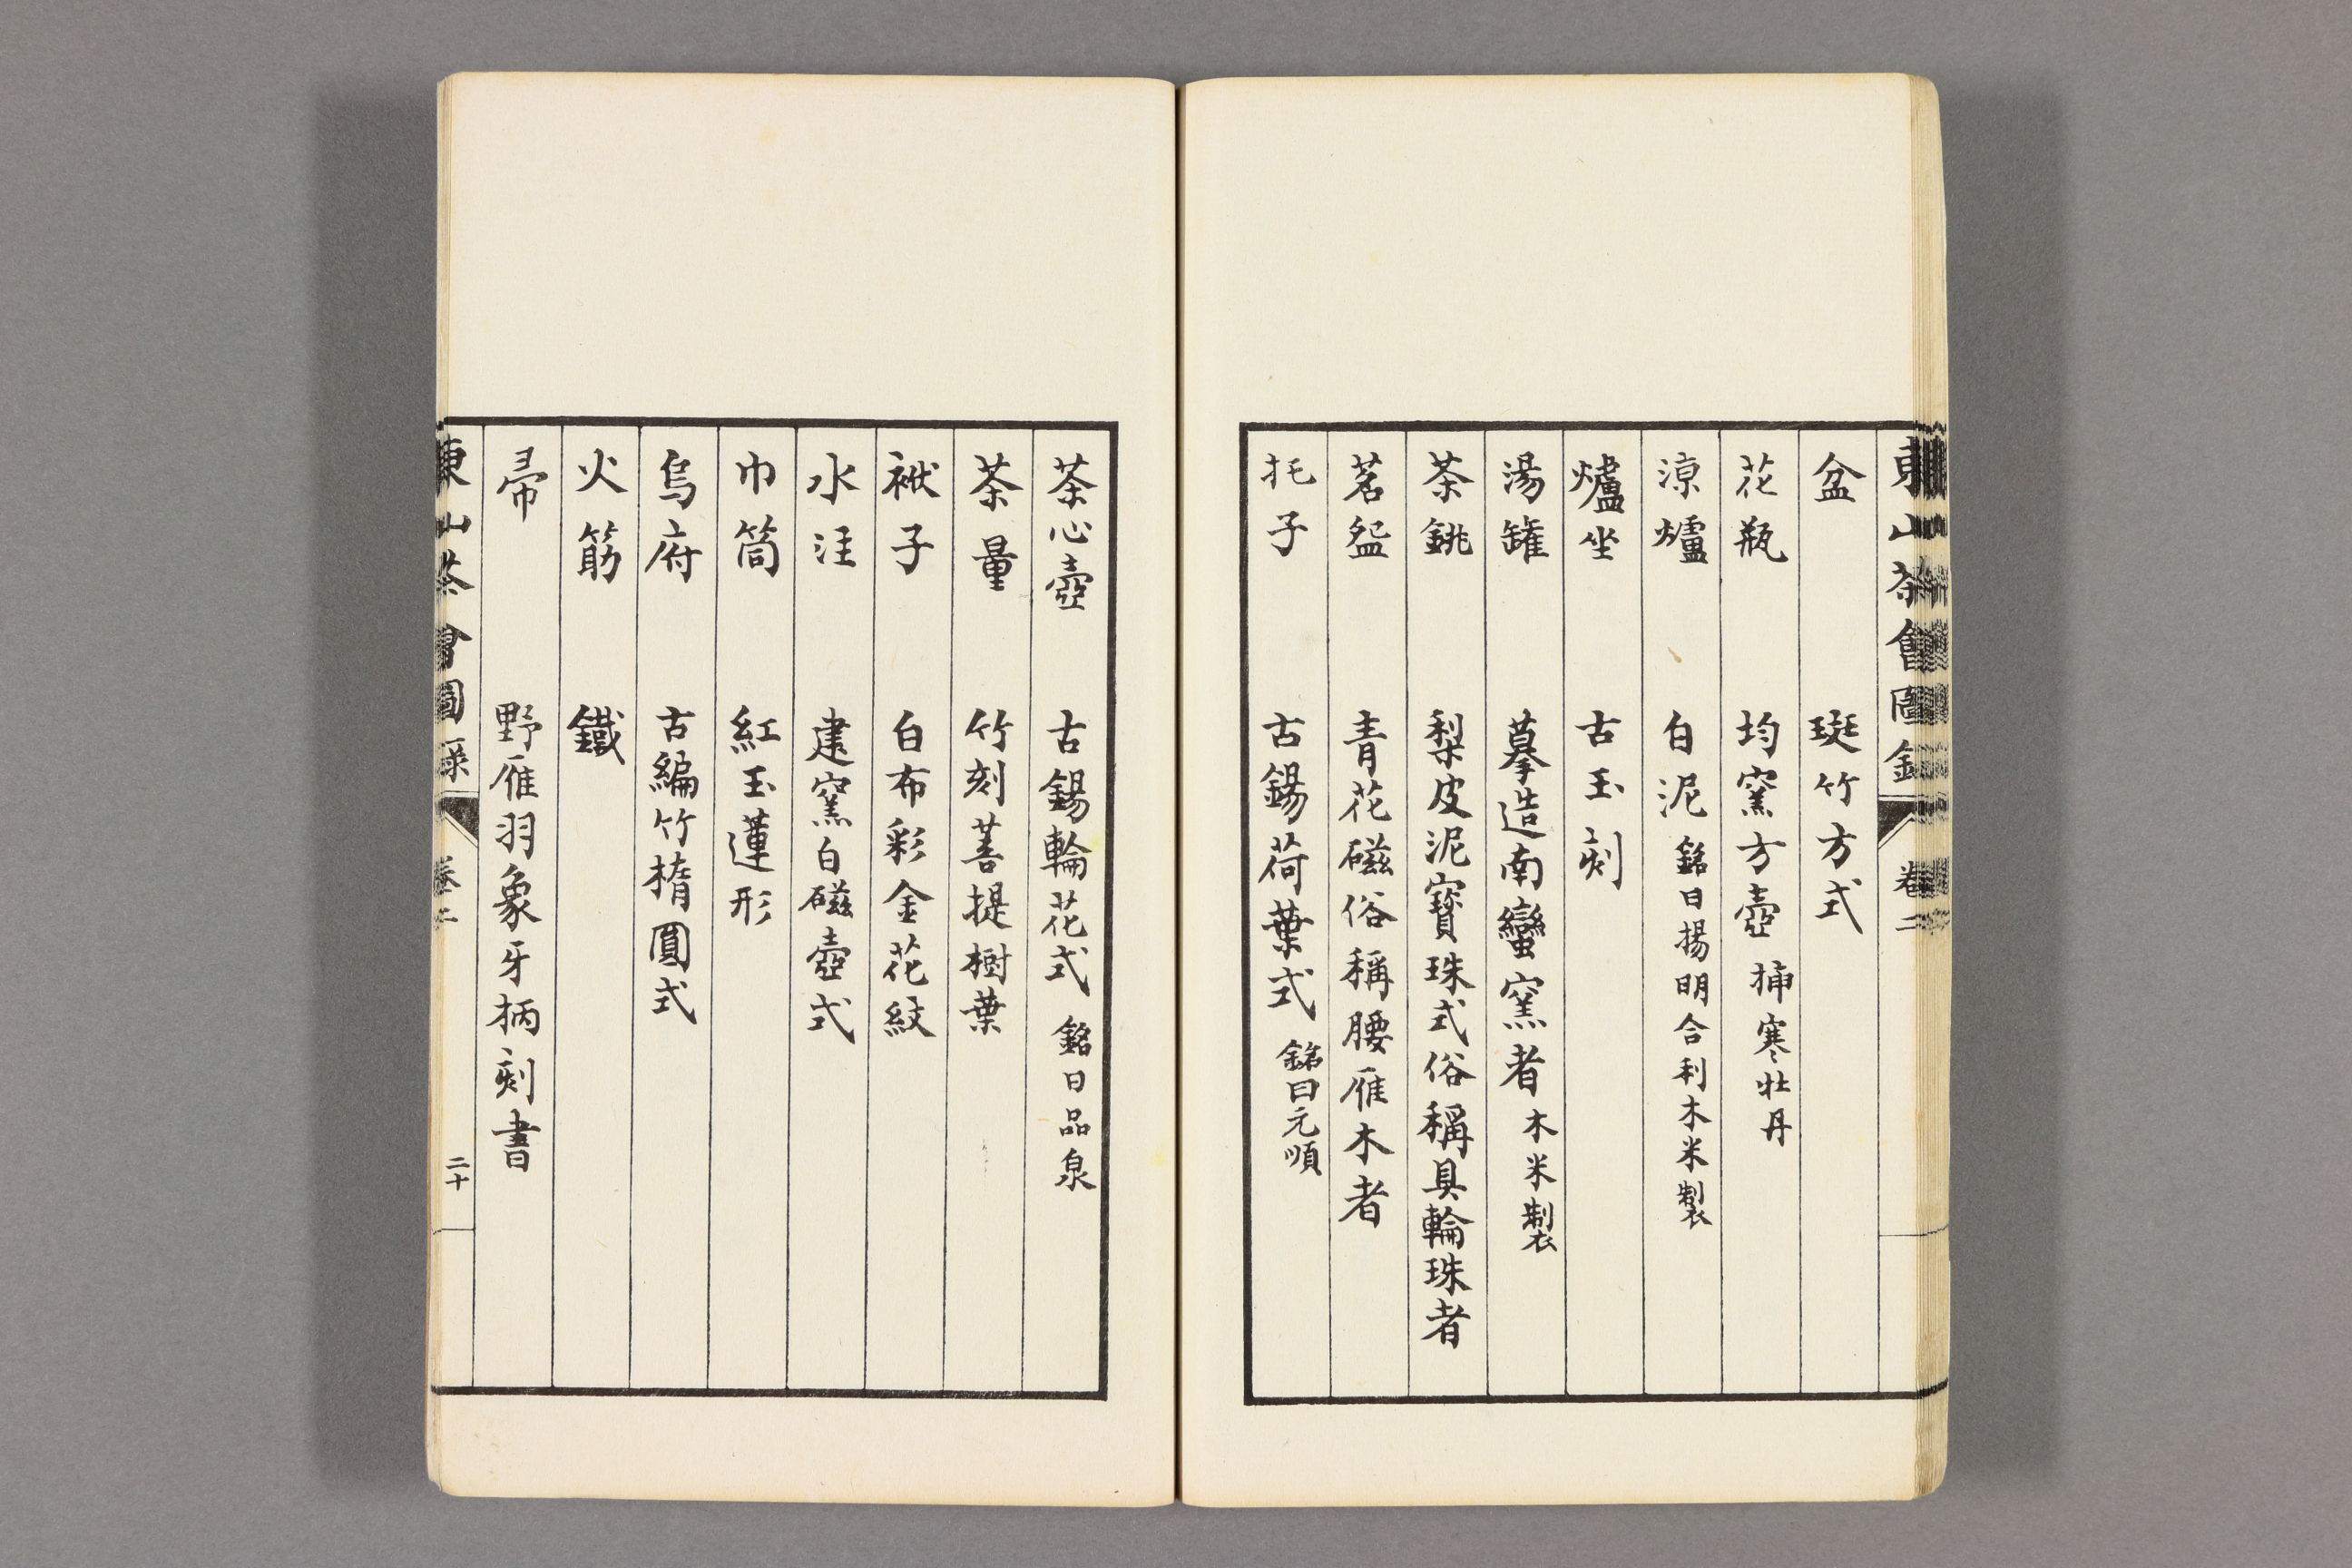 東山茶會圖錄 卷二
盆 斑竹方式
花瓶 均窯方壺 插寒牡丹
涼爐 白泥 銘曰揚明合利木米製
爐坐 古玉刻
湯罐 摹造南蠻窯者 木米製
茶銚 梨皮泥寶珠式俗稱具輪珠者
茗盌 青花磁俗稱腰雁木者
托子 古錫荷葉式 銘曰元順
茶心壺 古錫輪花式 銘曰品泉
茶量 竹刻菩提樹葉
袱子 白布彩金花紋
水注 建窯白磁壺式
巾筒 紅玉蓮形
烏府 古編竹橢圓式
火筯 鐵
帚 野雁羽象牙柄刻書
東山茶會圖錄 卷二 二十